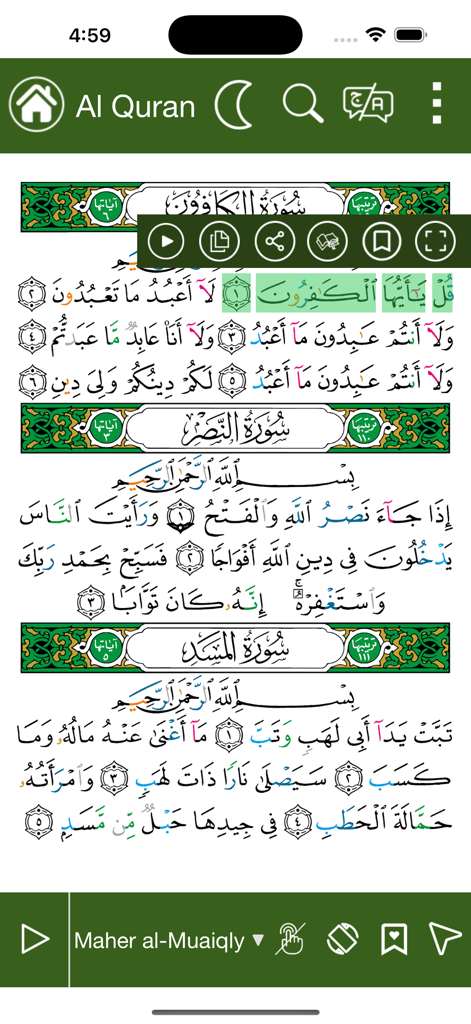 4:59
Al Quran
سُورَةُ الكَافِرُونَ
آياتها ٦
قُلْ يَـٰٓأَيُّهَا ٱلْكَـٰفِرُونَ ١ لَآ أَعْبُدُ مَا تَعْبُدُونَ ٢
وَلَآ أَنتُمْ عَـٰبِدُونَ مَآ أَعْبُدُ ٣ وَلَآ أَنَا۠ عَابِدٌ مَّا عَبَدتُّمْ ٤
وَلَآ أَنتُمْ عَـٰبِدُونَ مَآ أَعْبُدُ ٥ لَكُمْ دِينُكُمْ وَلِىَ دِينِ ٦
ترتيبها ١١٠ سُورَةُ النَّصْرِ آياتها ٣
بِسْمِ ٱللَّهِ ٱلرَّحْمَـٰنِ ٱلرَّحِيمِ
إِذَا جَآءَ نَصْرُ ٱللَّهِ وَٱلْفَتْحُ ١ وَرَأَيْتَ ٱلنَّاسَ
يَدْخُلُونَ فِى دِينِ ٱللَّهِ أَفْوَاجًا ٢ فَسَبِّحْ بِحَمْدِ رَبِّكَ
وَٱسْتَغْفِرْهُ ۚ إِنَّهُۥ كَانَ تَوَّابًۢا ٣
ترتيبها ١١١ سُورَةُ المَسَدِ آياتها ٥
بِسْمِ ٱللَّهِ ٱلرَّحْمَـٰنِ ٱلرَّحِيمِ
تَبَّتْ يَدَآ أَبِى لَهَبٍ وَتَبَّ ١ مَآ أَغْنَىٰ عَنْهُ مَالُهُۥ وَمَا
كَسَبَ ٢ سَيَصْلَىٰ نَارًا ذَاتَ لَهَبٍ ٣ وَٱمْرَأَتُهُۥ
حَمَّالَةَ ٱلْحَطَبِ ٤ فِى جِيدِهَا حَبْلٌ مِّن مَّسَدٍۭ ٥
Maher al-Muaiqly